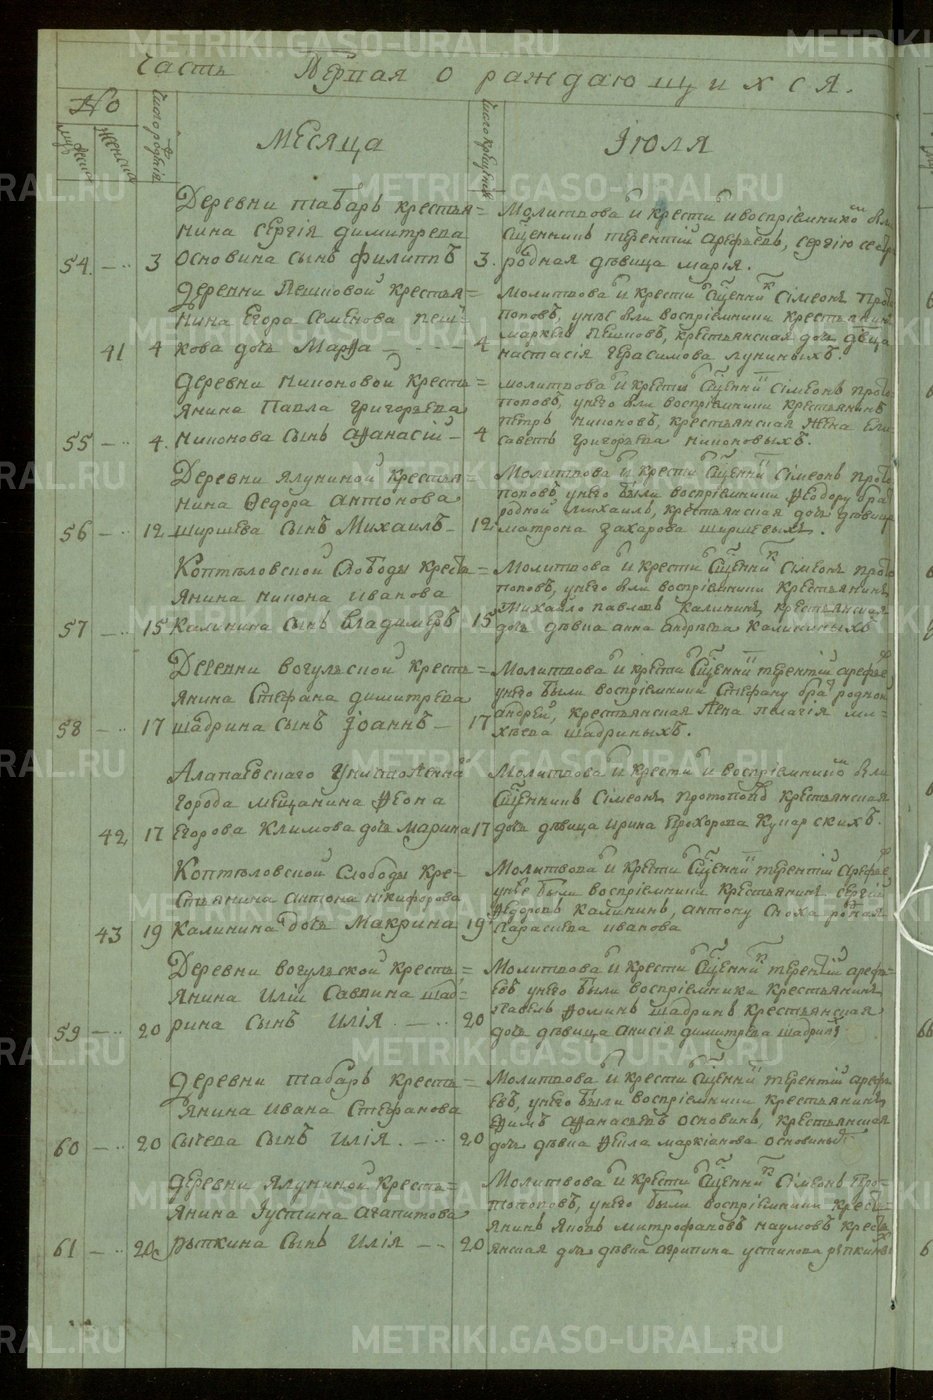 METRIKI.GASO-URAL.RU
Часть Первая о раждающихся.
No
мужска
женска
число рождения
Месяца
число крещения
Іюля
Деревни Табаръ крестья=
нина Сергія Димитрева
54. — 3 Основина сынъ Филиппъ
3. Молитвова и крести и воспріемникомъ были
Священникъ Терентій Арефьевъ, Сергію сестра
родная девица Марія.
Деревни Пешковой крестья=
нина Егора Семенова Пеш=
41 4 кова дочь Марфа
4 Молитвова и крести Священникъ Сімеонъ Прото
поповъ, унее были воспріемники крестьянинъ
Маркелъ Пешковъ, крестьянская дочь девица
Настасія Герасимова Луниныхъ.
Деревни Никоновой кресть=
янина Павла Григорьева
55 — 4. Никонова сынъ Афанасій —
4 Молитвова и крести Священникъ Сімеонъ Прото
поповъ, унего были воспріемники крестьянинъ
Петръ Никоновъ, крестьянская жена Ели
саветъ Григорьева Никоновыхъ.
Деревни Ялуниной крестья=
нина Федора Антонова
56 — 12 Ширшева сынъ Михаилъ —
12 Молитвова и крести Священникъ Сімеонъ Прото
поповъ, унего были воспріемники Феодору братъ
родной Михаилъ, крестьянская дочь девица
Матрона Захарова Ширшевыхъ.
Коптеловской Слободы кресть=
янина Никона Иванова
57 — 15 Калинина сынъ Владимеръ
15 Молитвова и крести Священникъ Сімеонъ Прото
поповъ, унего были воспріемники крестьянинъ
Михайло Павловъ Калининъ, крестьянская
дочь девка Анна Андреева Калининыхъ
Деревни Вогульской кресть=
янина Стефана Димитрева
58 — 17 Шадрина сынъ Іоаннъ —
17 Молитвова и крести Священникъ Терентій Арефье
унего были воспріемники Стефану братъ родной
Андрей, крестьянская жена Пелагія Ми-
хеева Шадриныхъ.
Алапаевскаго Уничтоженна
города мещанина Леона
42 17 Егорова Климова дочь Марина
17 Молитвова и крести и воспріемникомъ были
Священникъ Сімеонъ Протопопов крестьянская
дочь девица Ирина Прохорова Кунарскихъ.
Коптеловской Слободы Кре-
стьянина Антона Никифорова
43 19 Калинина дочь Макрина
19 Молитвова и крести Священникъ Терентій Арефье
унее были воспріемники крестьянинъ Сергій
Федоровъ Калининъ, Антону сноха родная
Парасковья Иванова
Деревни Вогульской кресть=
янина Иліи Саввина Шад=
59 — 20 рина сынъ Илія.
20 Молитвова и крести Священникъ Терентій Арефь-
евъ унего были воспріемники крестьянинъ
Фоминъ Шадринъ крестьянская
дочь девица Анисія Димитрева Шадрин
Деревни Табаръ кресть=
янина Ивана Стефанова
60 — 20 Сычева сынъ Илія.
20 Молитвова и крести Священникъ Терентій Арефь
евъ, унего были воспріемники крестьянинъ
Ефимъ Афанасьевъ Основинъ, крестьянская
дочь девка Фекла Маркіанова Основиныхъ
Деревни Ялуниной кресть=
янина Іустина Агапитова
61 — 20 Рыткина сынъ Илія
20 Молитвова и крести Священникъ Сімеонъ Про-
топоповъ, унего были воспріемники кресть-
янинъ Яковъ Митрофановъ Наумовъ кресть
янская дочь девка Агрипина Устинова Рыткиныхъ